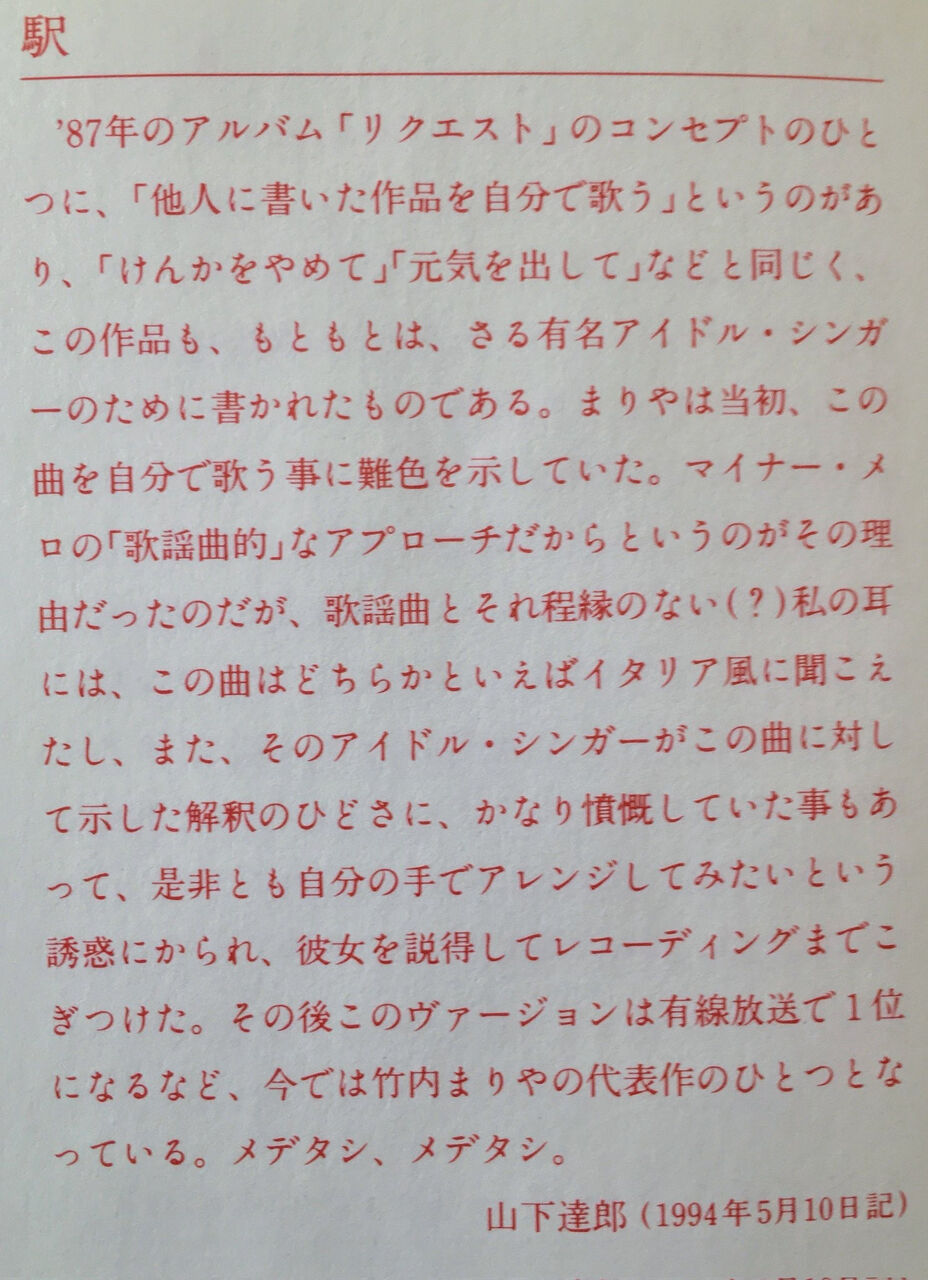 駅
’87年のアルバム「リクエスト」のコンセプトのひと
つに、「他人に書いた作品を自分で歌う」というのがあ
り、「けんかをやめて」「元気を出して」などと同じく、
この作品も、もともとは、さる有名アイドル・シンガ
ーのために書かれたものである。まりやは当初、この
曲を自分で歌う事に難色を示していた。マイナー・メ
ロの「歌謡曲的」なアプローチだからというのがその理
由だったのだが、歌謡曲とそれ程縁のない(？)私の耳
には、この曲はどちらかといえばイタリア風に聞こえ
たし、また、そのアイドル・シンガーがこの曲に対し
て示した解釈のひどさに、かなり憤慨していた事もあ
って、是非とも自分の手でアレンジしてみたいという
誘惑にかられ、彼女を説得してレコーディングまでこ
ぎつけた。その後このヴァージョンは有線放送で1位
になるなど、今では竹内まりやの代表作のひとつとな
っている。メデタシ、メデタシ。
山下達郎(1994年5月10日記)